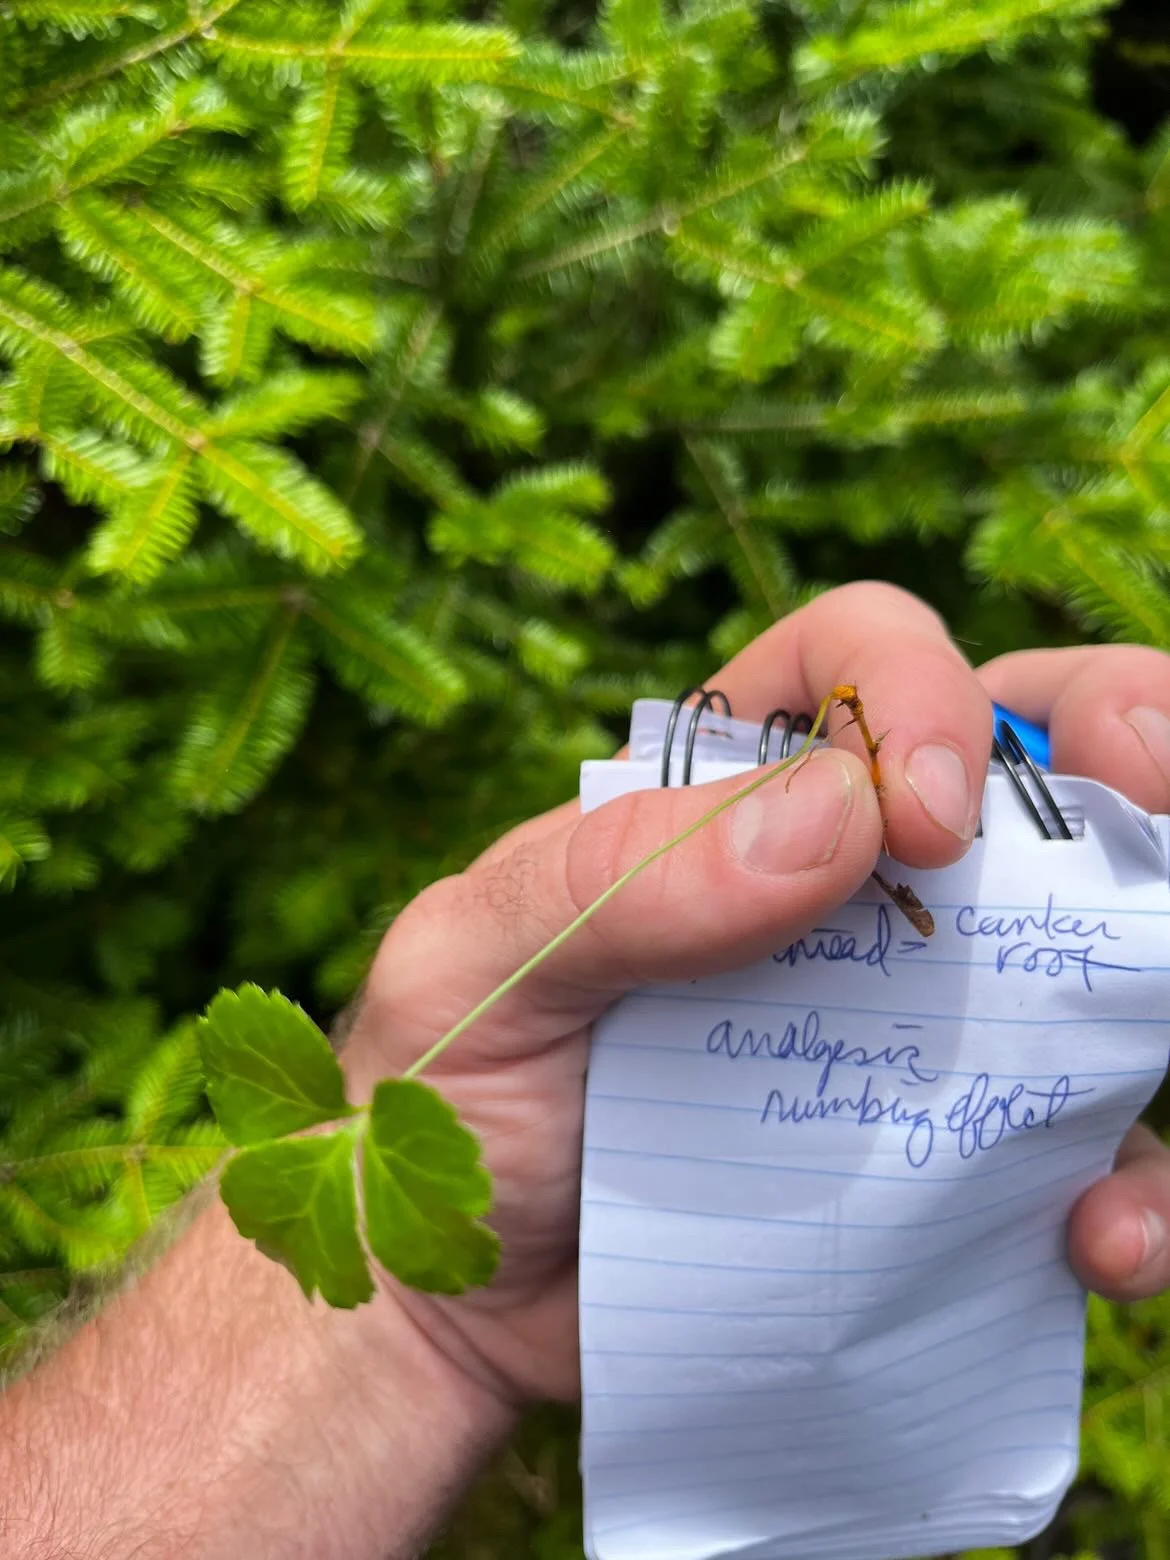 thread = canker
root
analgesic
numbing effect